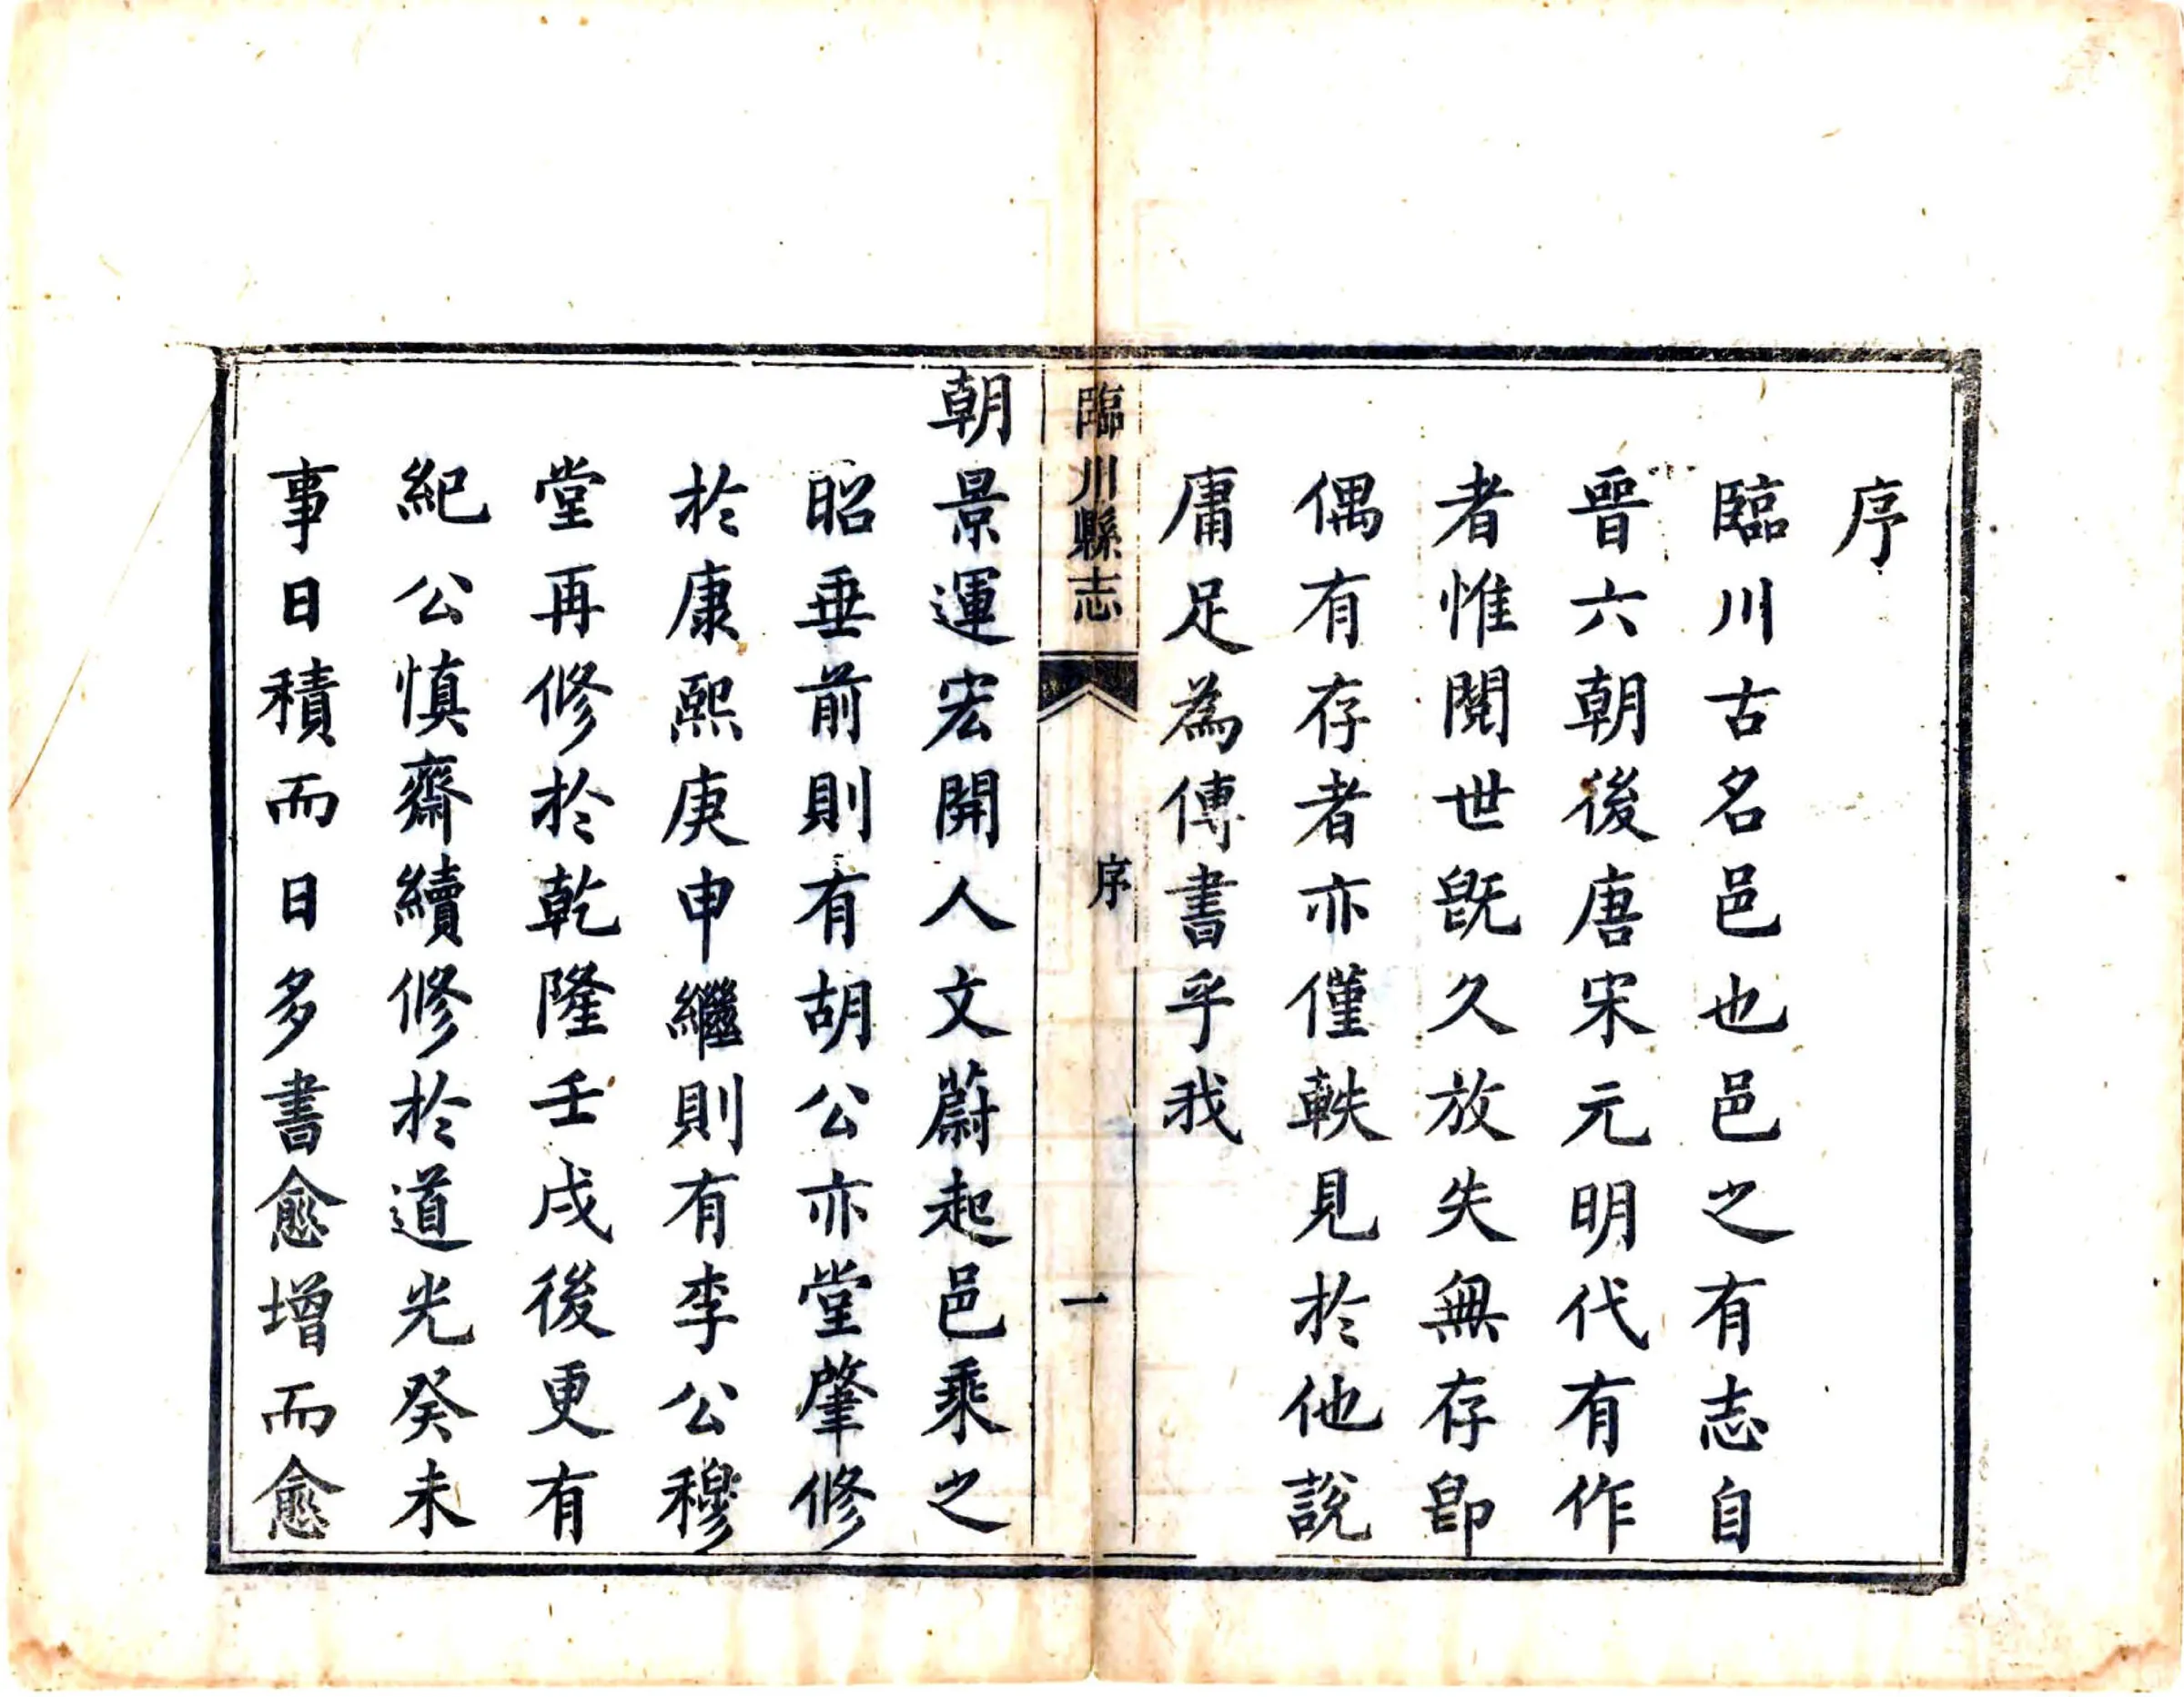 序
臨川古名邑也邑之有志自
晉六朝後唐宋元明代有作
者惟閱世旣久放失無存卽
偶有存者亦僅軼見於他說
庸足為傳書乎我
臨川縣志
序
一
朝景運宏開人文蔚起邑乘之
昭垂前則有胡公亦堂肇修
於康熙庚申繼則有李公穆
堂再修於乾隆壬戌後更有
紀公慎齋續修於道光癸未
事日積而日多書愈增而愈